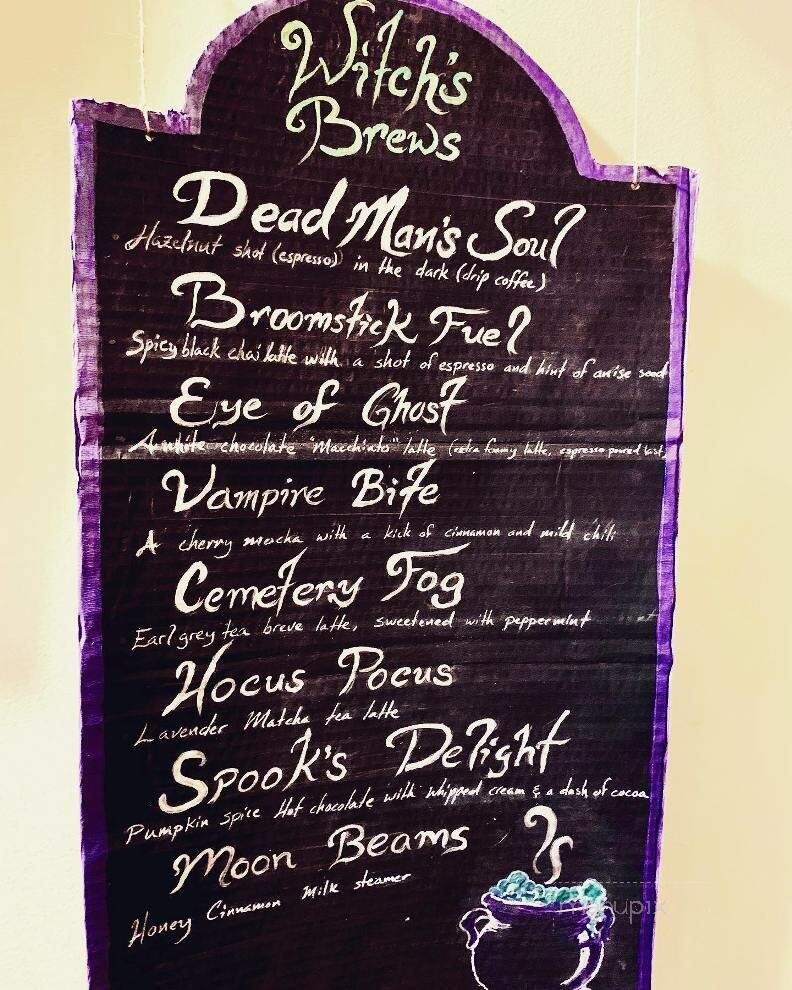 Witch's
Brews
Dead Man's Soul
Hazelnut shot (espresso) in the dark (drip coffee)
Broomstick Fuel
Spicy black chai latte with a shot of espresso and hint of anise seed
Eye of Ghost
A white chocolate "Macchiato" latte (extra foamy latte, espresso poured last)
Vampire Bite
A cherry mocha with a kick of cinnamon and mild chili
Cemetery Fog
Earl grey tea breve latte, sweetened with peppermint
Hocus Pocus
Lavender Matcha tea latte
Spook's Delight
Pumpkin spice Hot chocolate with whipped cream & a dash of cocoa
Moon Beams
Honey Cinnamon Milk steamer
menupix